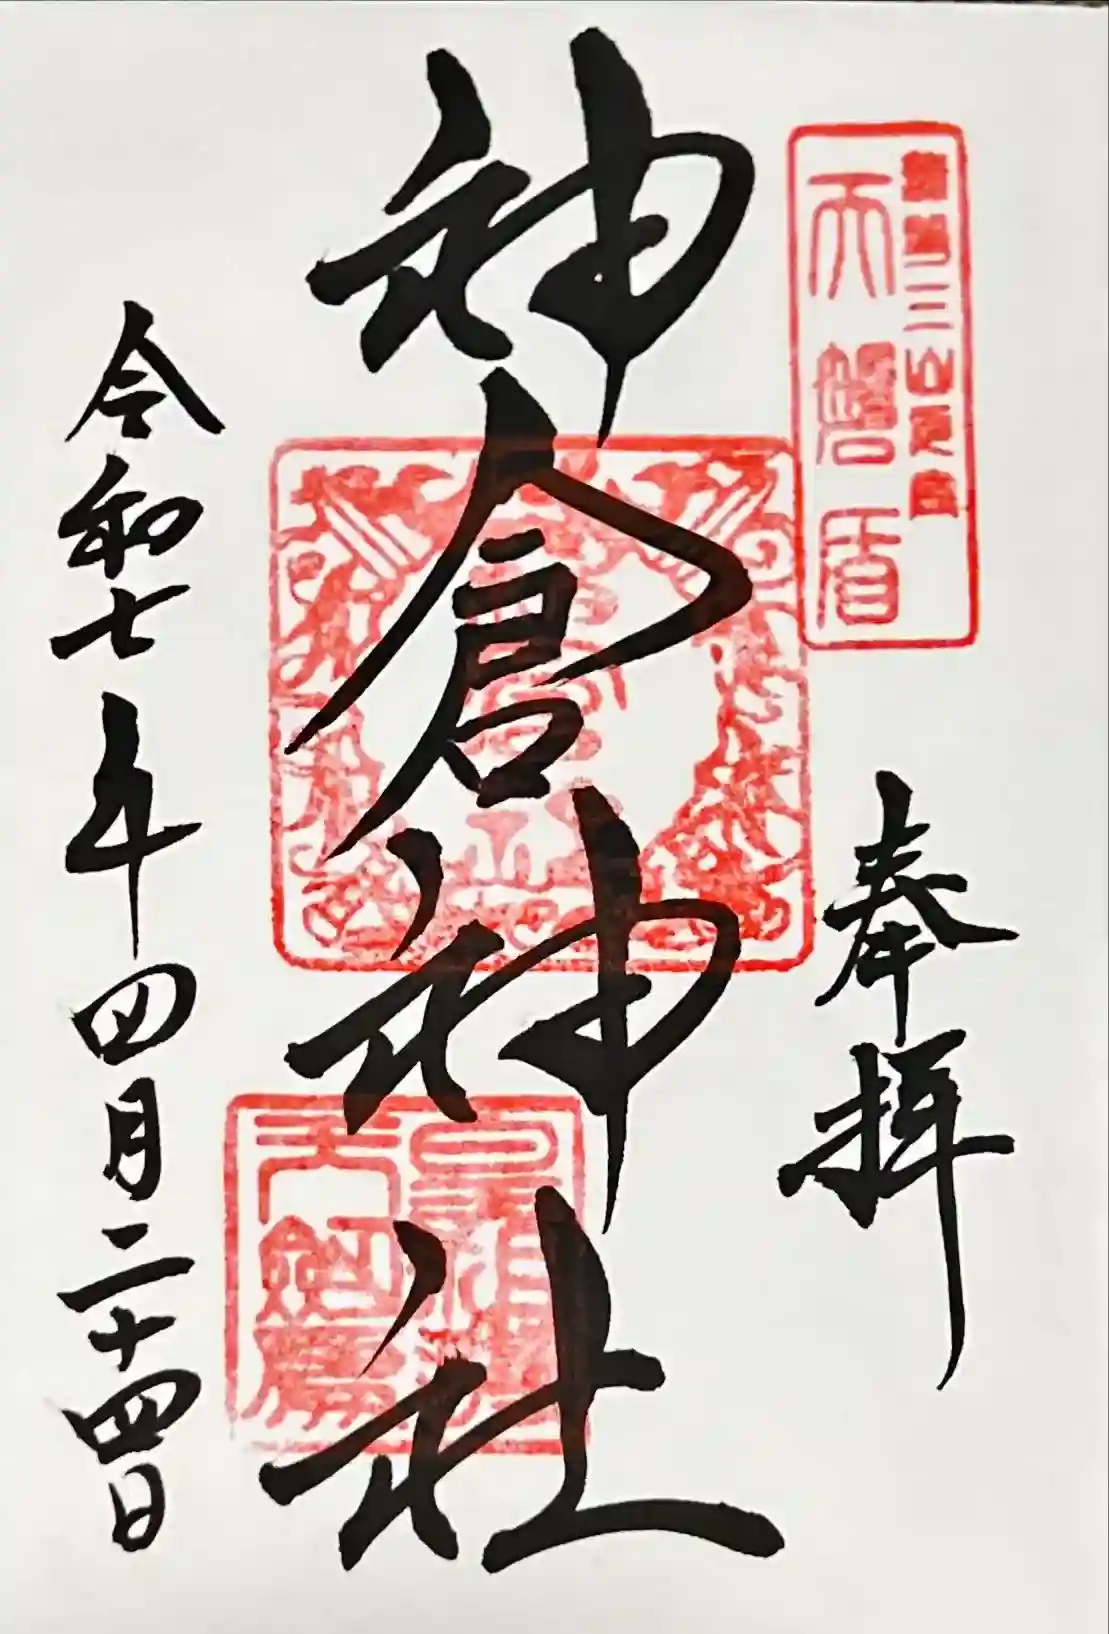 熊野三山元宮
天磐盾
奉拝
神倉神社
令和七年四月二十四日